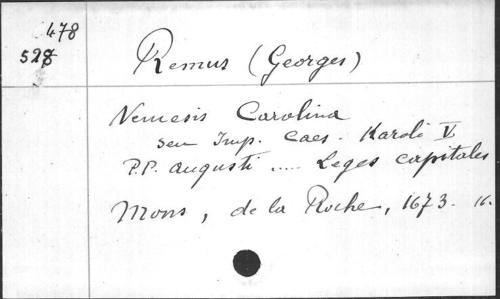 478
528
Remus (Georges)
Nemesis Carolina
seu Imp. Caes. Karoli V
P.P. augusti ..... Leges capitales
Mons, de la Roche, 1673. 16.